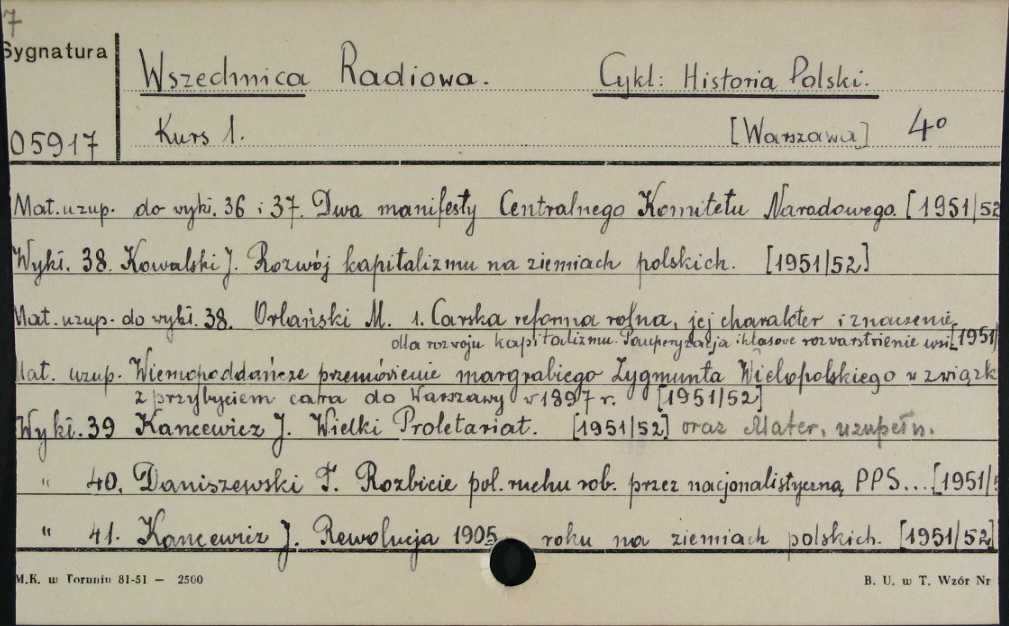 7
Sygnatura
Wszechnica Radiowa. Cykl: Historia Polski.
05917
Kurs 1. [Warszawa] 4°
Mat. uzup. do wykł. 36 i 37. Dwa manifesty Centralnego Komitetu Narodowego. [1951/52
Wykł. 38. Kowalski J. Rozwój kapitalizmu na ziemiach polskich. [1951/52]
Mat. uzup. do wykł. 38. Orlański M. 1. Carska reforma rolna, jej charakter i znaczenie
dla rozwoju kapitalizmu. Pauperyzacja i klasowe rozwarstwienie wsi [1951/
Mat. uzup. Wiernopoddańcze przemówienie margrabiego Zygmunta Wielopolskiego w związk
z przybyciem cara do Warszawy w 1897 r. [1951/52]
Wykł. 39 Kancewicz J. Wielki Proletariat. [1951/52] oraz Mater. uzupełn.
" 40. Daniszewski T. Rozbicie pol. ruchu rob. przez nacjonalistyczną PPS... [1951/5
" 41. Kancewicz J. Rewolucja 1905 roku na ziemiach polskich. [1951/52]
M.K. w Toruniu 81-51 — 2500 B. U. w T. Wzór Nr